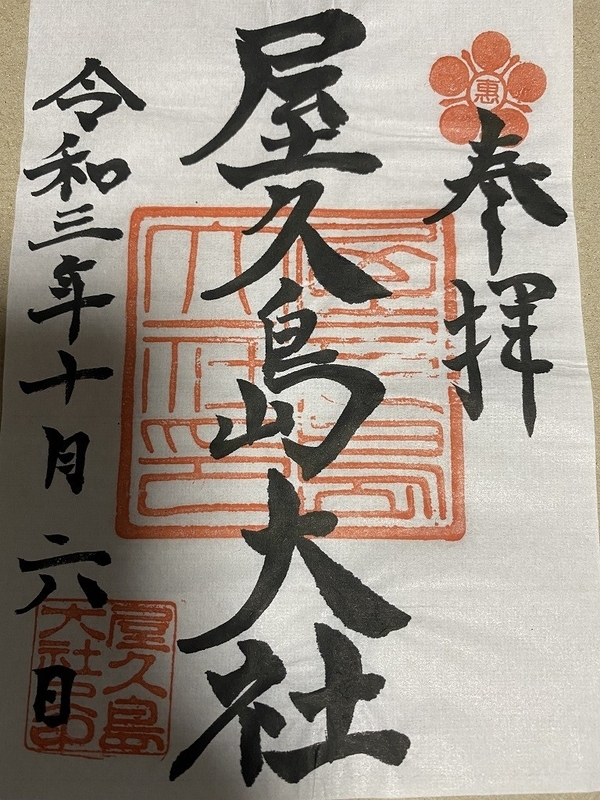 奉拝
惠
屋久島大社
令和三年十月六日
屋久島
大社印